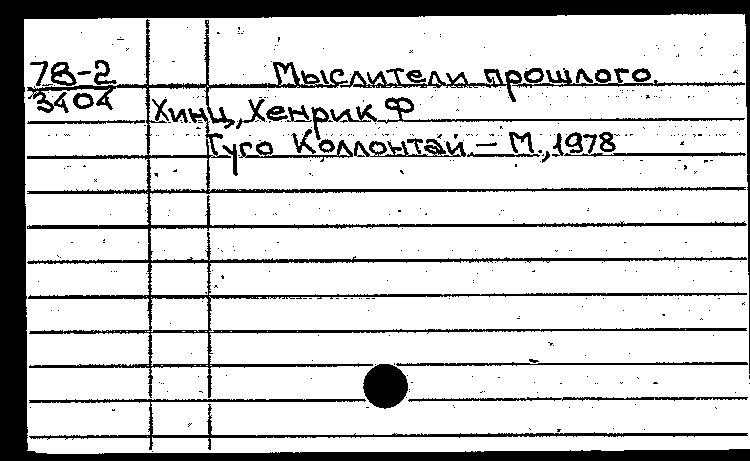 78-2 Мыслители прошлого.
3404
Хинц, Хенрик Ф
Гуго Коллонтай. – М., 1978